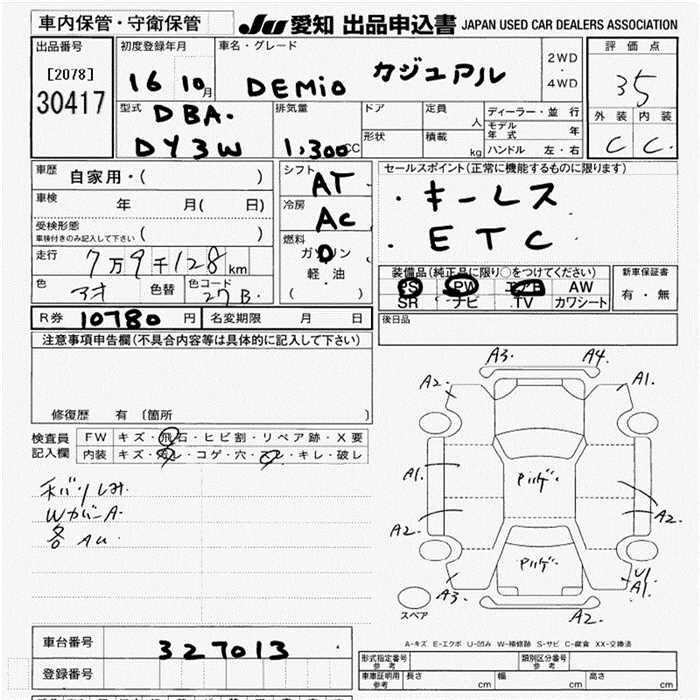 車内保管・守衛保管
JU 愛知 出品申込書 JAPAN USED CAR DEALERS ASSOCIATION
出品番号
[2078]
30417
初度登録年月
16 10月
車名・グレード
DEMIO カジュアル
2WD
・
4WD
評価点
35
外装 内装
C C
型式
DBA.
DY3W
排気量
1,300CC
ドア
形状
定員 人
積載 kg
ディーラー・並行
モデル年式 年
ハンドル 左・右
車歴 自家用・( )
車検 年 月( 日)
受検形態
車検付きのみ記入して下さい ( )
走行 7万9千128km
色 アオ 色替 色コード 27B.
シフト AT
冷房 AC
燃料
ガソリン
軽・油
( )
セールスポイント(正常に機能するものに限ります)
・キーレス
・ETC
装備品(純正品に限り○をつけてください)
PS PW エアB AW
SR ナビ TV カワシート
新車保証書
有・無
後日品
R券 10780 円
名変期限 月 日
注意事項申告欄(不具合内容等は具体的に記入して下さい)
修復歴 有〔箇所 〕
検査員
記入欄
FW キズ・飛石・ヒビ割・リペア跡・X要
内装 キズ・ヨゴレ・コゲ・穴・スレ・キレ・破レ
Wカバ-A.
各AU
A3. A4.
A2. A1.
A1
A2. A2.
A1. U1
A1.
A2.
スペア
A-キズ E-エクボ U-凹み W-補修跡 S-サビ C-腐食 XX-交換済
車台番号 327013
登録番号
形式指定番号
参考
類別区分番号
参考
車庫証明用
参考
長さ cm 幅 cm 高さ cm